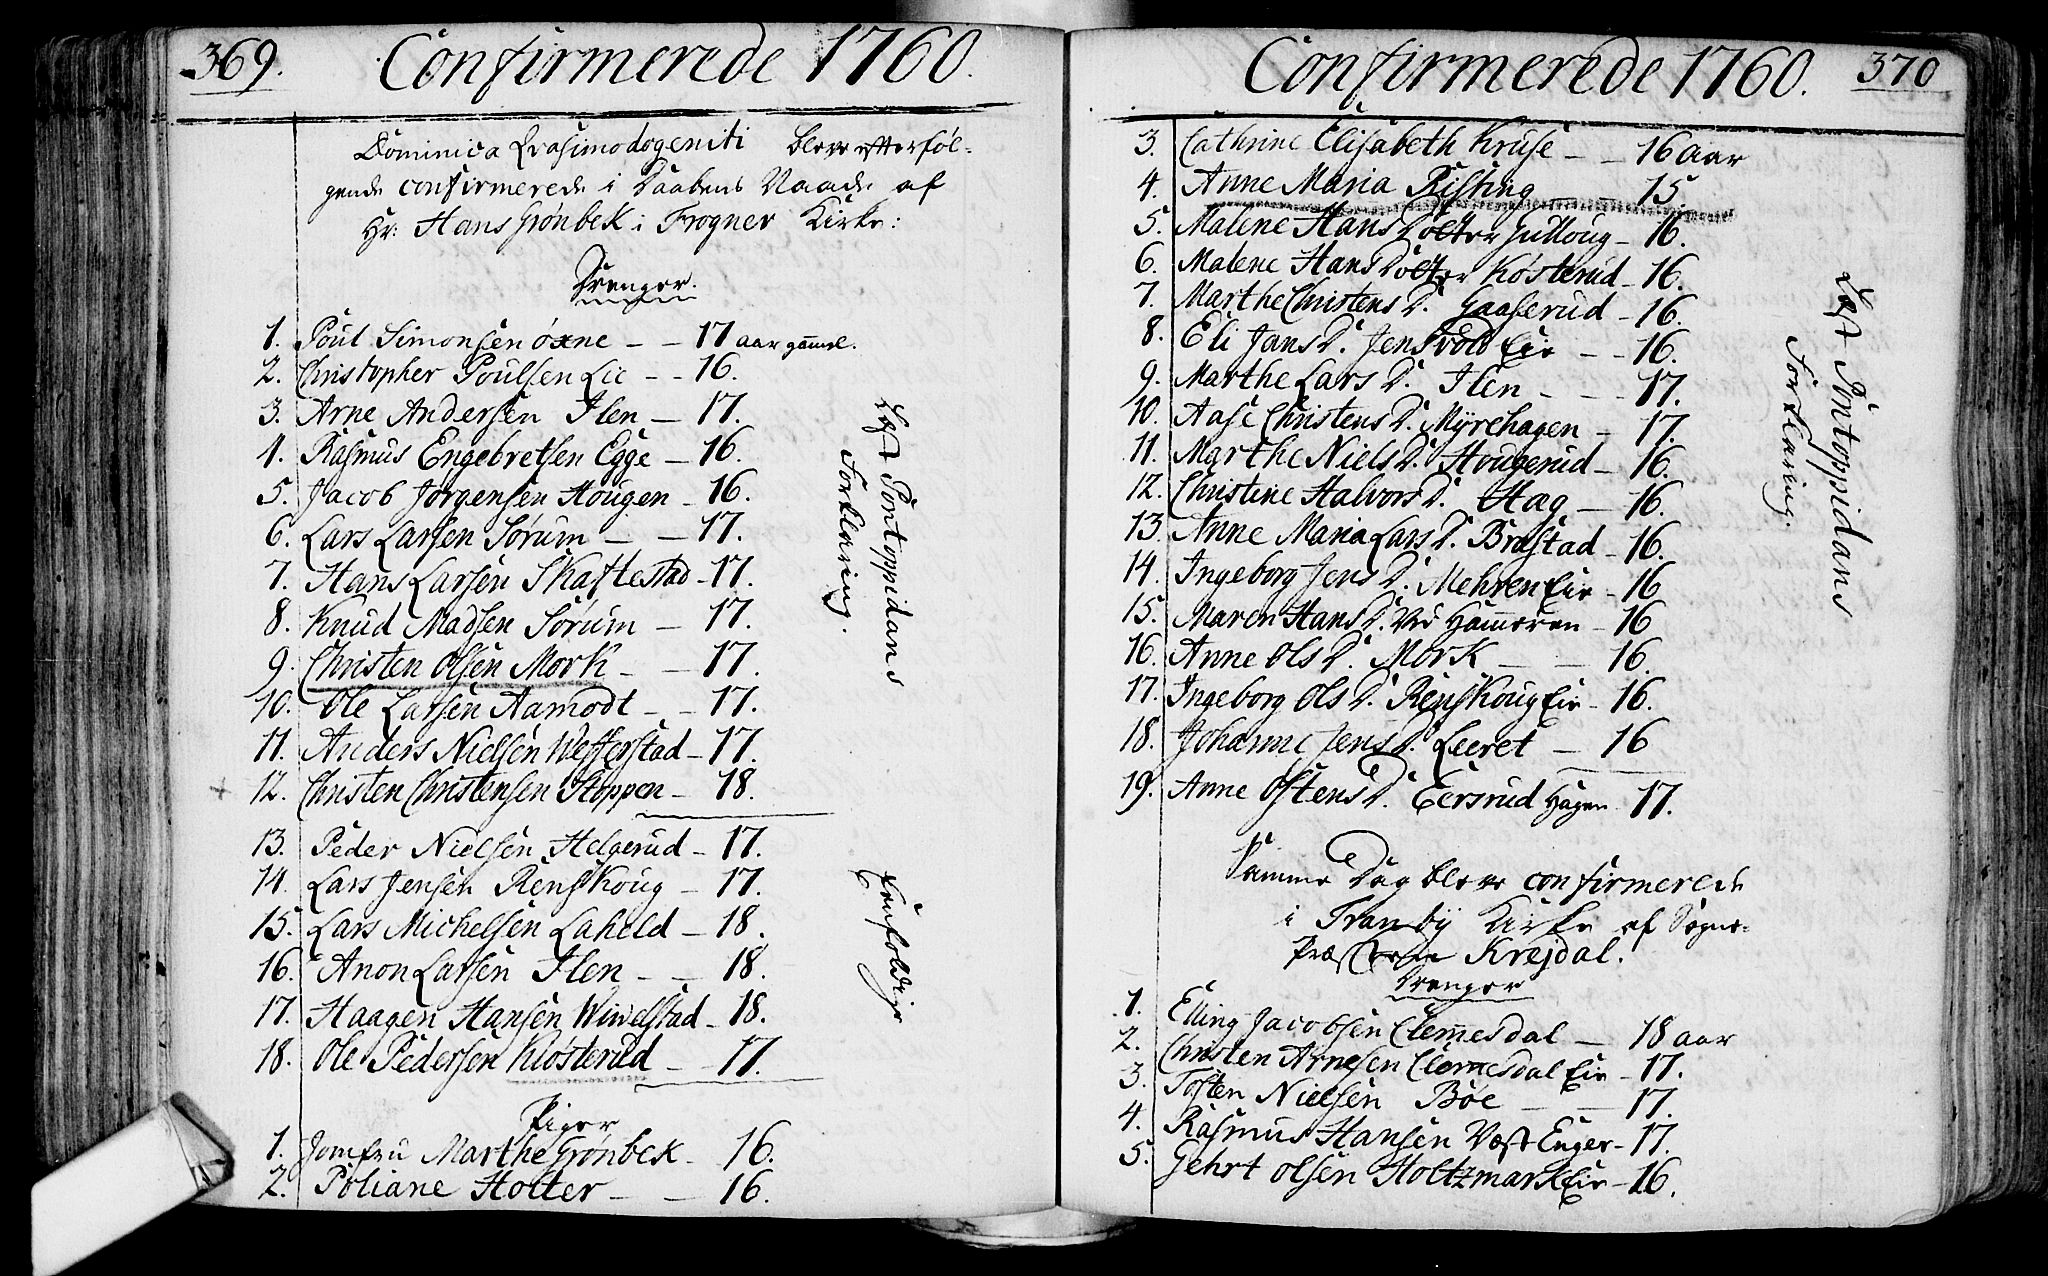 369. Confirmerede 1760.
Dominica Qvasimodogeniti blev efterføl-
gende confirmerede i Daabens Naade af
Hr: Hans Grønbek i Frogner Kirke:
Drenger.
1. Poul Simonsen Øxne - - 17 aar gammel.
2. Christopher Poulsen Lie - - 16.
3. Arne Andersen Ilen - 17.
4. Rasmus Engebretsen Egge - 16.
5. Jacob Jørgensen Hougen - 16.
6. Lars Larsen Sørum - - 17.
7. Hans Larsen Skaftestad - 17.
8. Knud Madsen Sørum - 17.
9. Christen Olsen Mork - - 17.
10. Ole Larsen Aamodt - - 17.
11. Anders Nielsen Wefferstad - 17.
12. Christen Christensen Stoppen - 18.
læst Pontoppidans
Forklaring.
13. Peder Nielsen Helgerud - 17.
14. Lars Jensen Renskoug - 17.
15. Lars Michelsen Laheld - 18.
16. Anon Larsen Ilen - - 18.
17. Haagen Hansen Wiwelstad - 18.
18. Ole Pedersen Kiøsterud - 17.
Eenfoldige
Piger
1. Jomfru Marthe Grønbek - 16.
2. Poliane Holter - - 16.
Confirmerede 1760. 370
3. Cathrine Elisabeth Kruse - - 16 aar
4. Anne Maria Risting - - 15.
5. Malene Hans Dotter Gulloug - 16.
6. Malene Hans Dotter Køsterud - 16.
7. Marthe Christens D. Gaaserud - 16.
8. Eli Jans D. Jensvold Eie - - 16.
9. Marthe Lars D. Ilen - - 17.
10. Aase Christens D. Myrehagen - 17.
11. Marthe Niels D. Hougerud - 16.
12. Christine Halvors D. Hæg - 16.
13. Anne Maria Lars D. Brastad - 16.
14. Ingeborg Jens D. Mehren Eie - 16
15. Maren Hans D. ved Hammeren - 16
16. Anne Ols D. Mork - - 16.
17. Ingeborg Ols D. Renskoug Eie - 16.
18. Johanne Jens D. Leeret - 16
19. Anne Ostens D. Eersrud Hagen 17.
læst Pontoppidans
Forklaring.
Samme Dag blev confirmerede
i Tranby Kirke af Sogne-
Præsten Krejdal.
Drenger
1. Elling Jacobsen Clemmesdal - 18 aar
2. Christen Arnesen Clemmesdal Eie - 17.
3. Tosten Nielsen Bøe - - 17.
4. Rasmus Hansen Væst Enger - 17.
5. Gehrt Olsen Holtzmark Eie - 16.